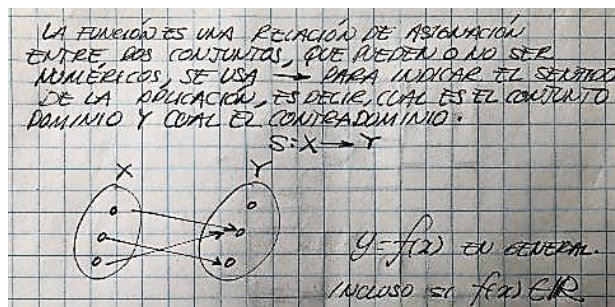 LA FUNCIÓN ES UNA RELACIÓN DE ASIGNACIÓN
ENTRE DOS CONJUNTOS, QUE PUEDEN O NO SER
NUMÉRICOS, SE USA → PARA INDICAR EL SENTIDO
DE LA APLICACIÓN, ES DECIR, CUAL ES EL CONJUNTO
DOMINIO Y CUAL EL CONTRADOMINIO.
S:X→Y
X Y
y=f(x) EN GENERAL.
INCLUSO SI f(x)∈ℝ